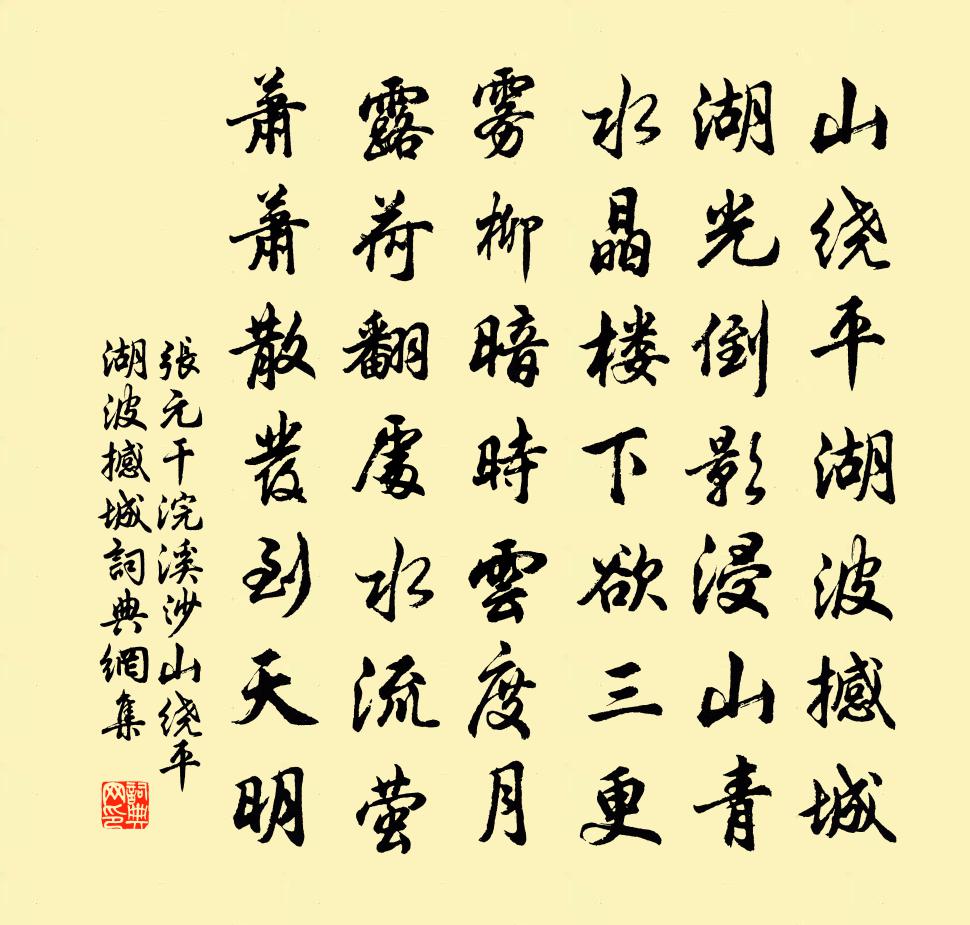 山绕平湖波撼城
湖光倒影浸山青
水晶楼下欲三更
雾柳暗時雲度月
露荷翻處水流萤
萧萧散發到天明
張元干浣溪沙山绕平
湖波撼城詞典網集
詞典網印